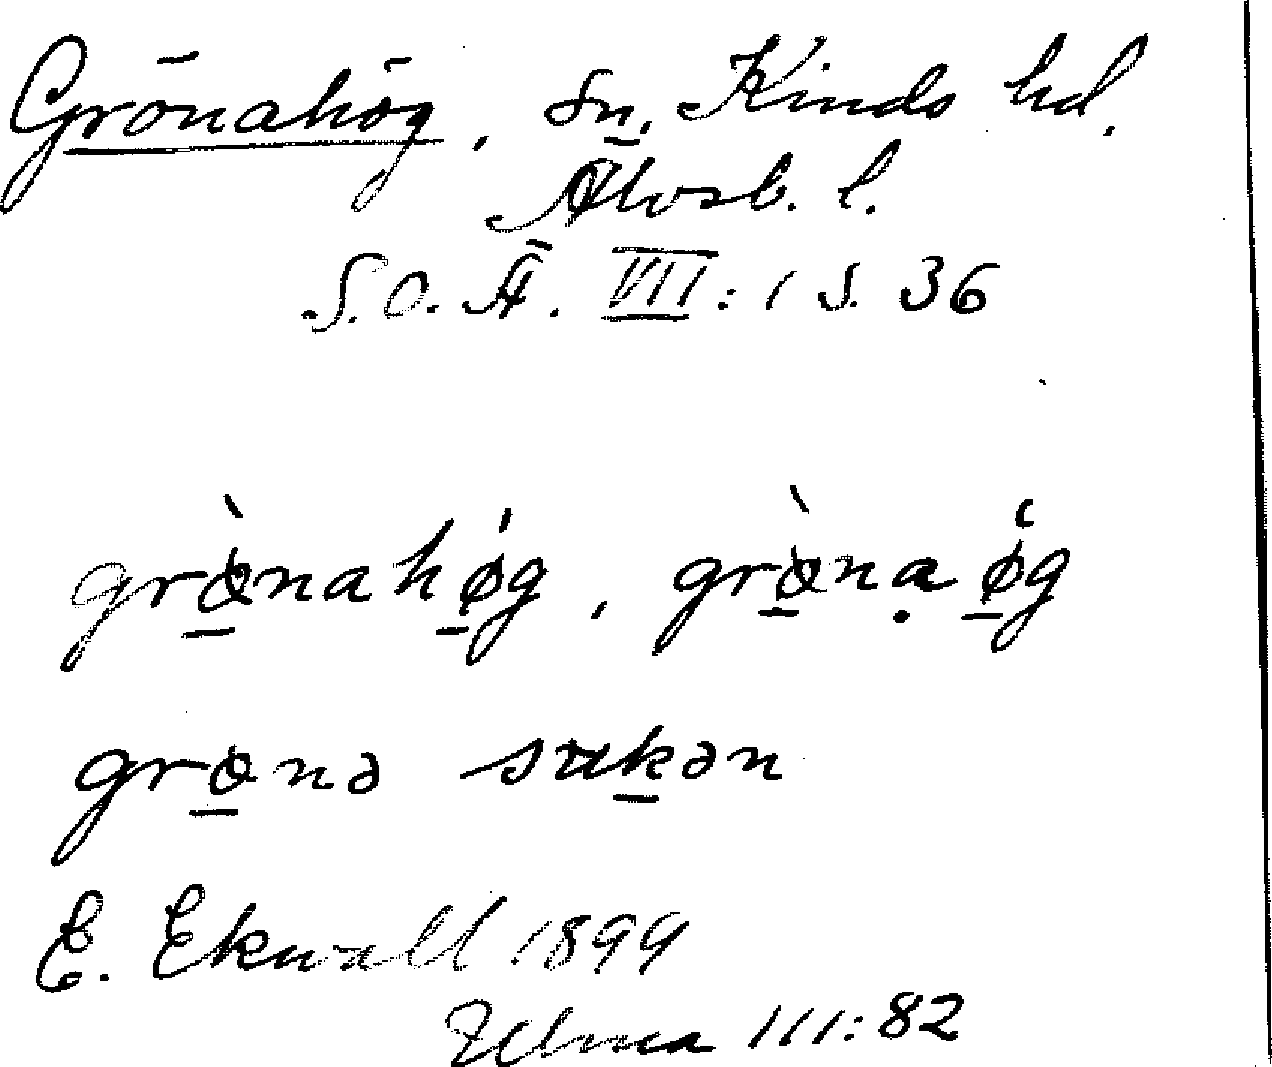 Grönahög, sn, Kinds hd,
Älvsb. l.
S.O.Ä. VII: 1 s. 36
grø̀nahǿg, grø̀nạǿg
grønə sukən
E. Ekwall 1899
Ulma 111:82